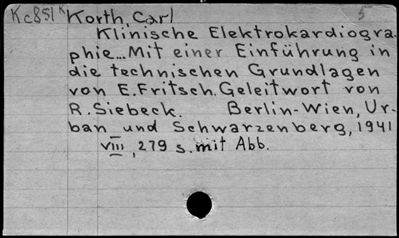 Kc851K Korth, Carl 5
Klinische Elektrokardiogra-
phie... Mit einer Einführung in
die technischen Grundlagen
von E. Fritsch. Geleitwort von
R. Siebeck. Berlin-Wien, Ur-
ban und Schwarzenberg, 1941
VIII, 279 s. mit Abb.